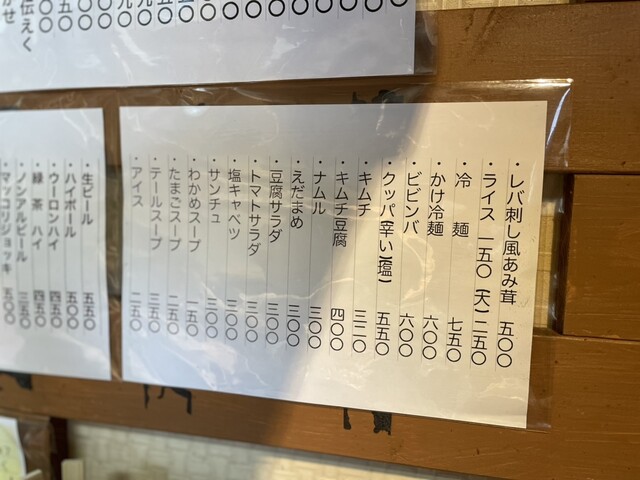 伝えく
かせ
・レバ刺し風あみ茸 五〇〇
・ライス 一五〇 (大)二五〇
・冷 麺 七五〇
・かけ冷麺 六〇〇
・ビビンバ 六〇〇
・クッパ(辛い)(塩) 五五〇
・キムチ 三二〇
・キムチ豆腐 四〇〇
・ナムル 三〇〇
・えだまめ 三〇〇
・豆腐サラダ 三〇〇
・トマトサラダ 三〇〇
・塩キャベツ 三〇〇
・サンチュ 三〇〇
・わかめスープ 一五〇
・たまごスープ 二五〇
・テールスープ
・アイス
・生ビール 五五〇
・ハイボール 五〇〇
・ウーロンハイ 四五〇
・緑 茶 ハイ 四五〇
・ノンアルビール 三五〇
・マッコリジョッキ 五〇〇